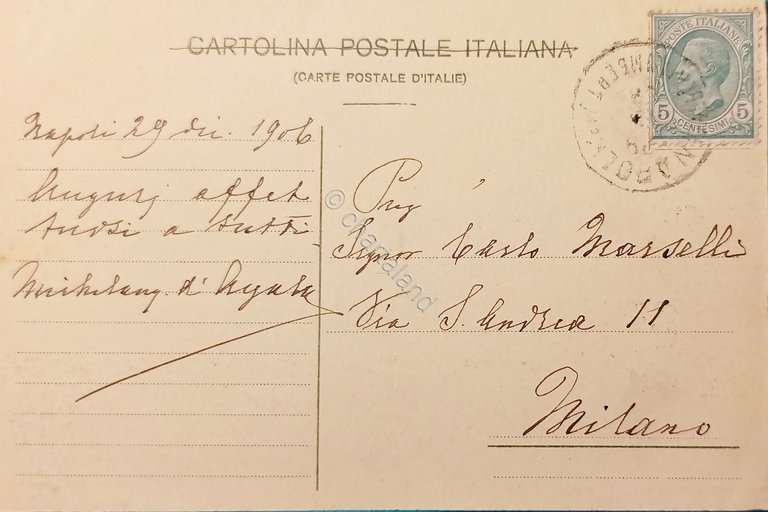 CARTOLINA POSTALE ITALIANA
(CARTE POSTALE D'ITALIE)
POSTE ITALIANE
5 CENTESIMI 5
NAPOLI
Napoli 29 dic. 1906
Augurj affet
tuosi a tutti
Michelang. d'Ayala
Preg
Signor Carlo Marselli
Via S. Andrea 11
Milano
© chartaland